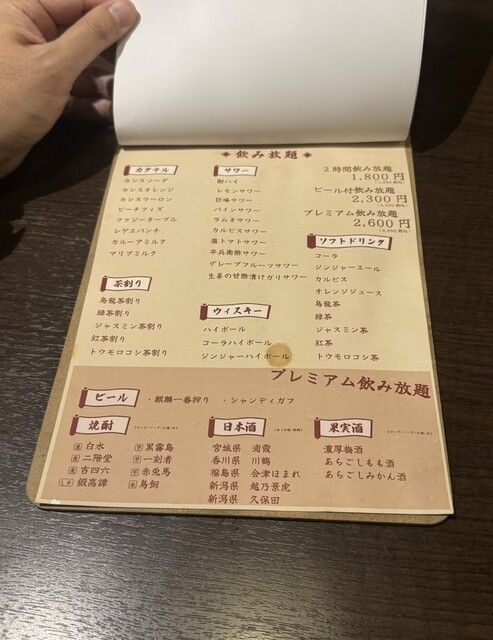 飲み放題
カクテル
カシスソーダ
カシスオレンジ
カシスウーロン
ピーチフィズ
ファジーネーブル
レゲエパンチ
カルーアミルク
マリブミルク
茶割り
烏龍茶割り
緑茶割り
ジャスミン茶割り
紅茶割り
トウモロコシ茶割り
サワー
酎ハイ
レモンサワー
巨峰サワー
パインサワー
ラムネサワー
カルピスサワー
塩トマトサワー
平兵衛酢サワー
グレープフルーツサワー
生姜の甘酢漬けガリサワー
ウィスキー
ハイボール
コーラハイボール
ジンジャーハイボール
2時間飲み放題
1,800円
ビール付飲み放題
2,300円
プレミアム飲み放題
2,600円
ソフトドリンク
コーラ
ジンジャーエール
カルピス
オレンジジュース
烏龍茶
緑茶
ジャスミン茶
紅茶
トウモロコシ茶
プレミアム飲み放題
ビール
・麒麟一番搾り ・シャンディガフ
焼酎
白水
二階堂
吉四六
鍛高譚
黒霧島
一刻者
赤兎馬
鳥飼
日本酒
宮城県 浦霞
香川県 川鶴
福島県 会津ほまれ
新潟県 越乃景虎
新潟県 久保田
果実酒
濃厚梅酒
あらごしもも酒
あらごしみかん酒